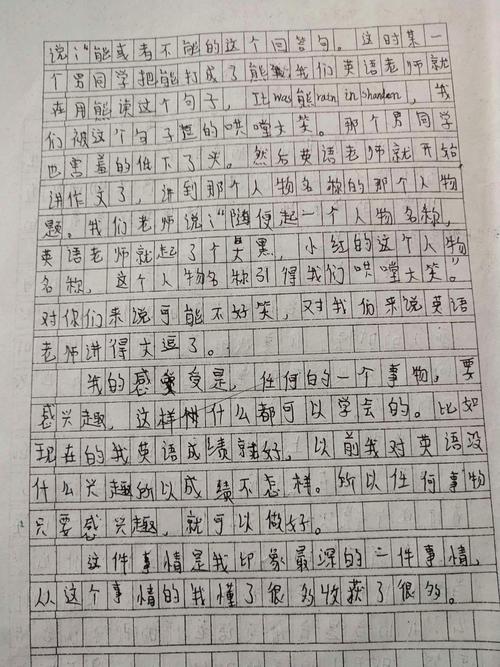 说:“能或者不能的这个回答句。这时某一
个男同学把能打成了熊,我们英语老师就
在用熊读这个句子,It was熊rain in shandon,我
们被这个句子逗的哄堂大笑。那个男同学
也害羞的低下了头。然后英语老师就开始
讲作文了,讲到那个人物名称的那个人物
题。我们老师说:“随便起一个人物名称,
英语老师就起了个 小红的这个人物
名称,这个人物名称引得我们哄堂大笑。”
对你们来说可能不好笑,对我们来说英语
老师讲得太逗了。
我的感受是,任何的一个事物,要
感兴趣,这样什么都可以学会的。比如
现在的我英语成绩就好,以前我对英语没
什么兴趣所以成绩不怎样。所以任何事物
只要感兴趣,就可以做好。
这件事情是我印象最深的一件事情,
从这个事情的我懂了很多收获了很多。